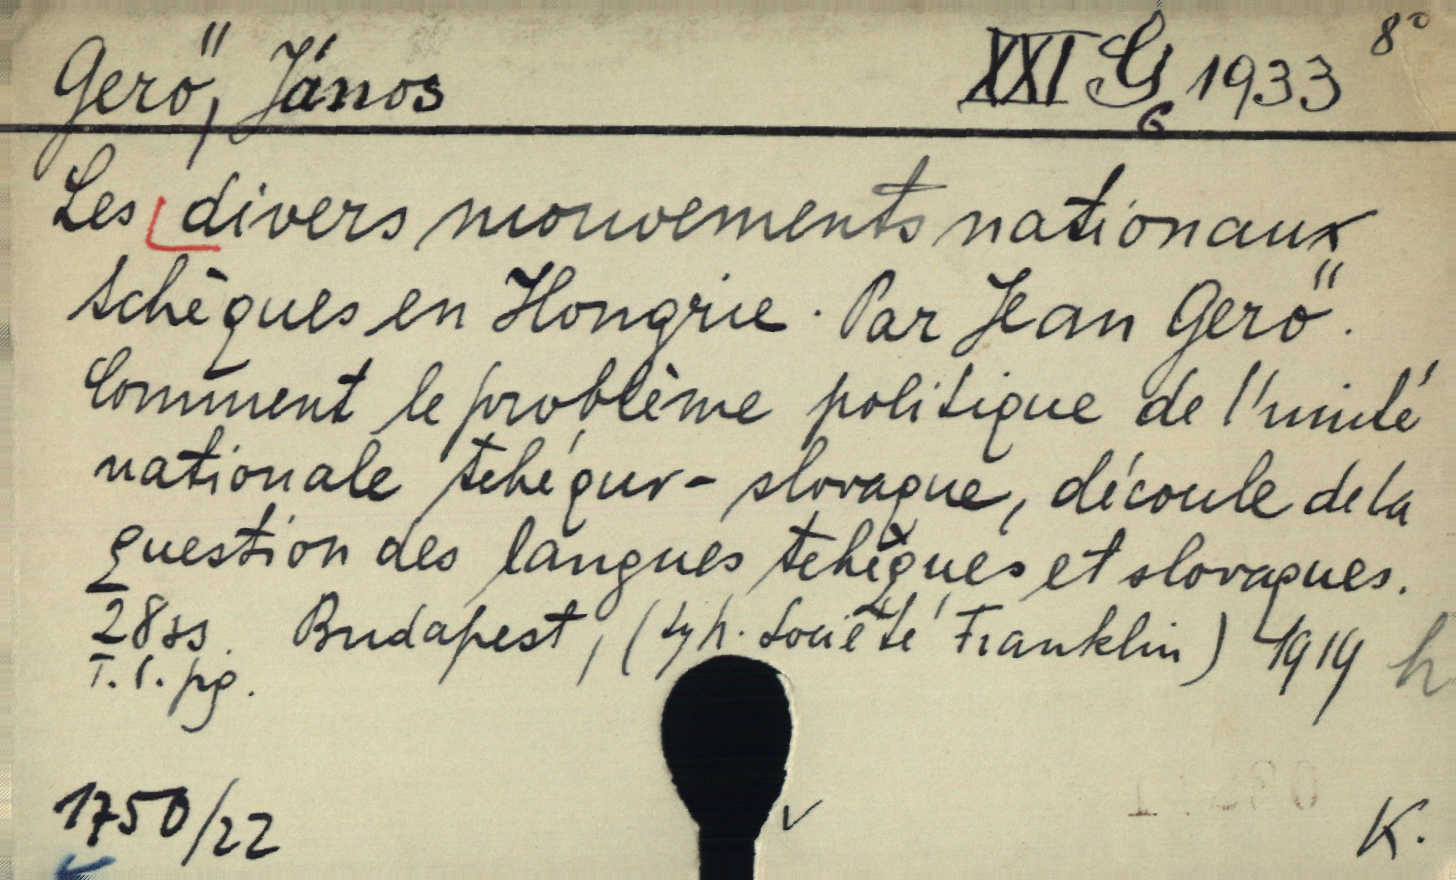 Gerő, János XXI G G 1933 8°
Les divers mouvements nationaux
tchèques en Hongrie. Par Jean Gerő.
Comment le problème politique de l'unité
nationale tchéque-slovaque, découle de la
question des langues tchèques et slovaques.
28 ss. Budapest, (typ. Société Franklin) 1919 h
T. l. pg.
1750/22 K.